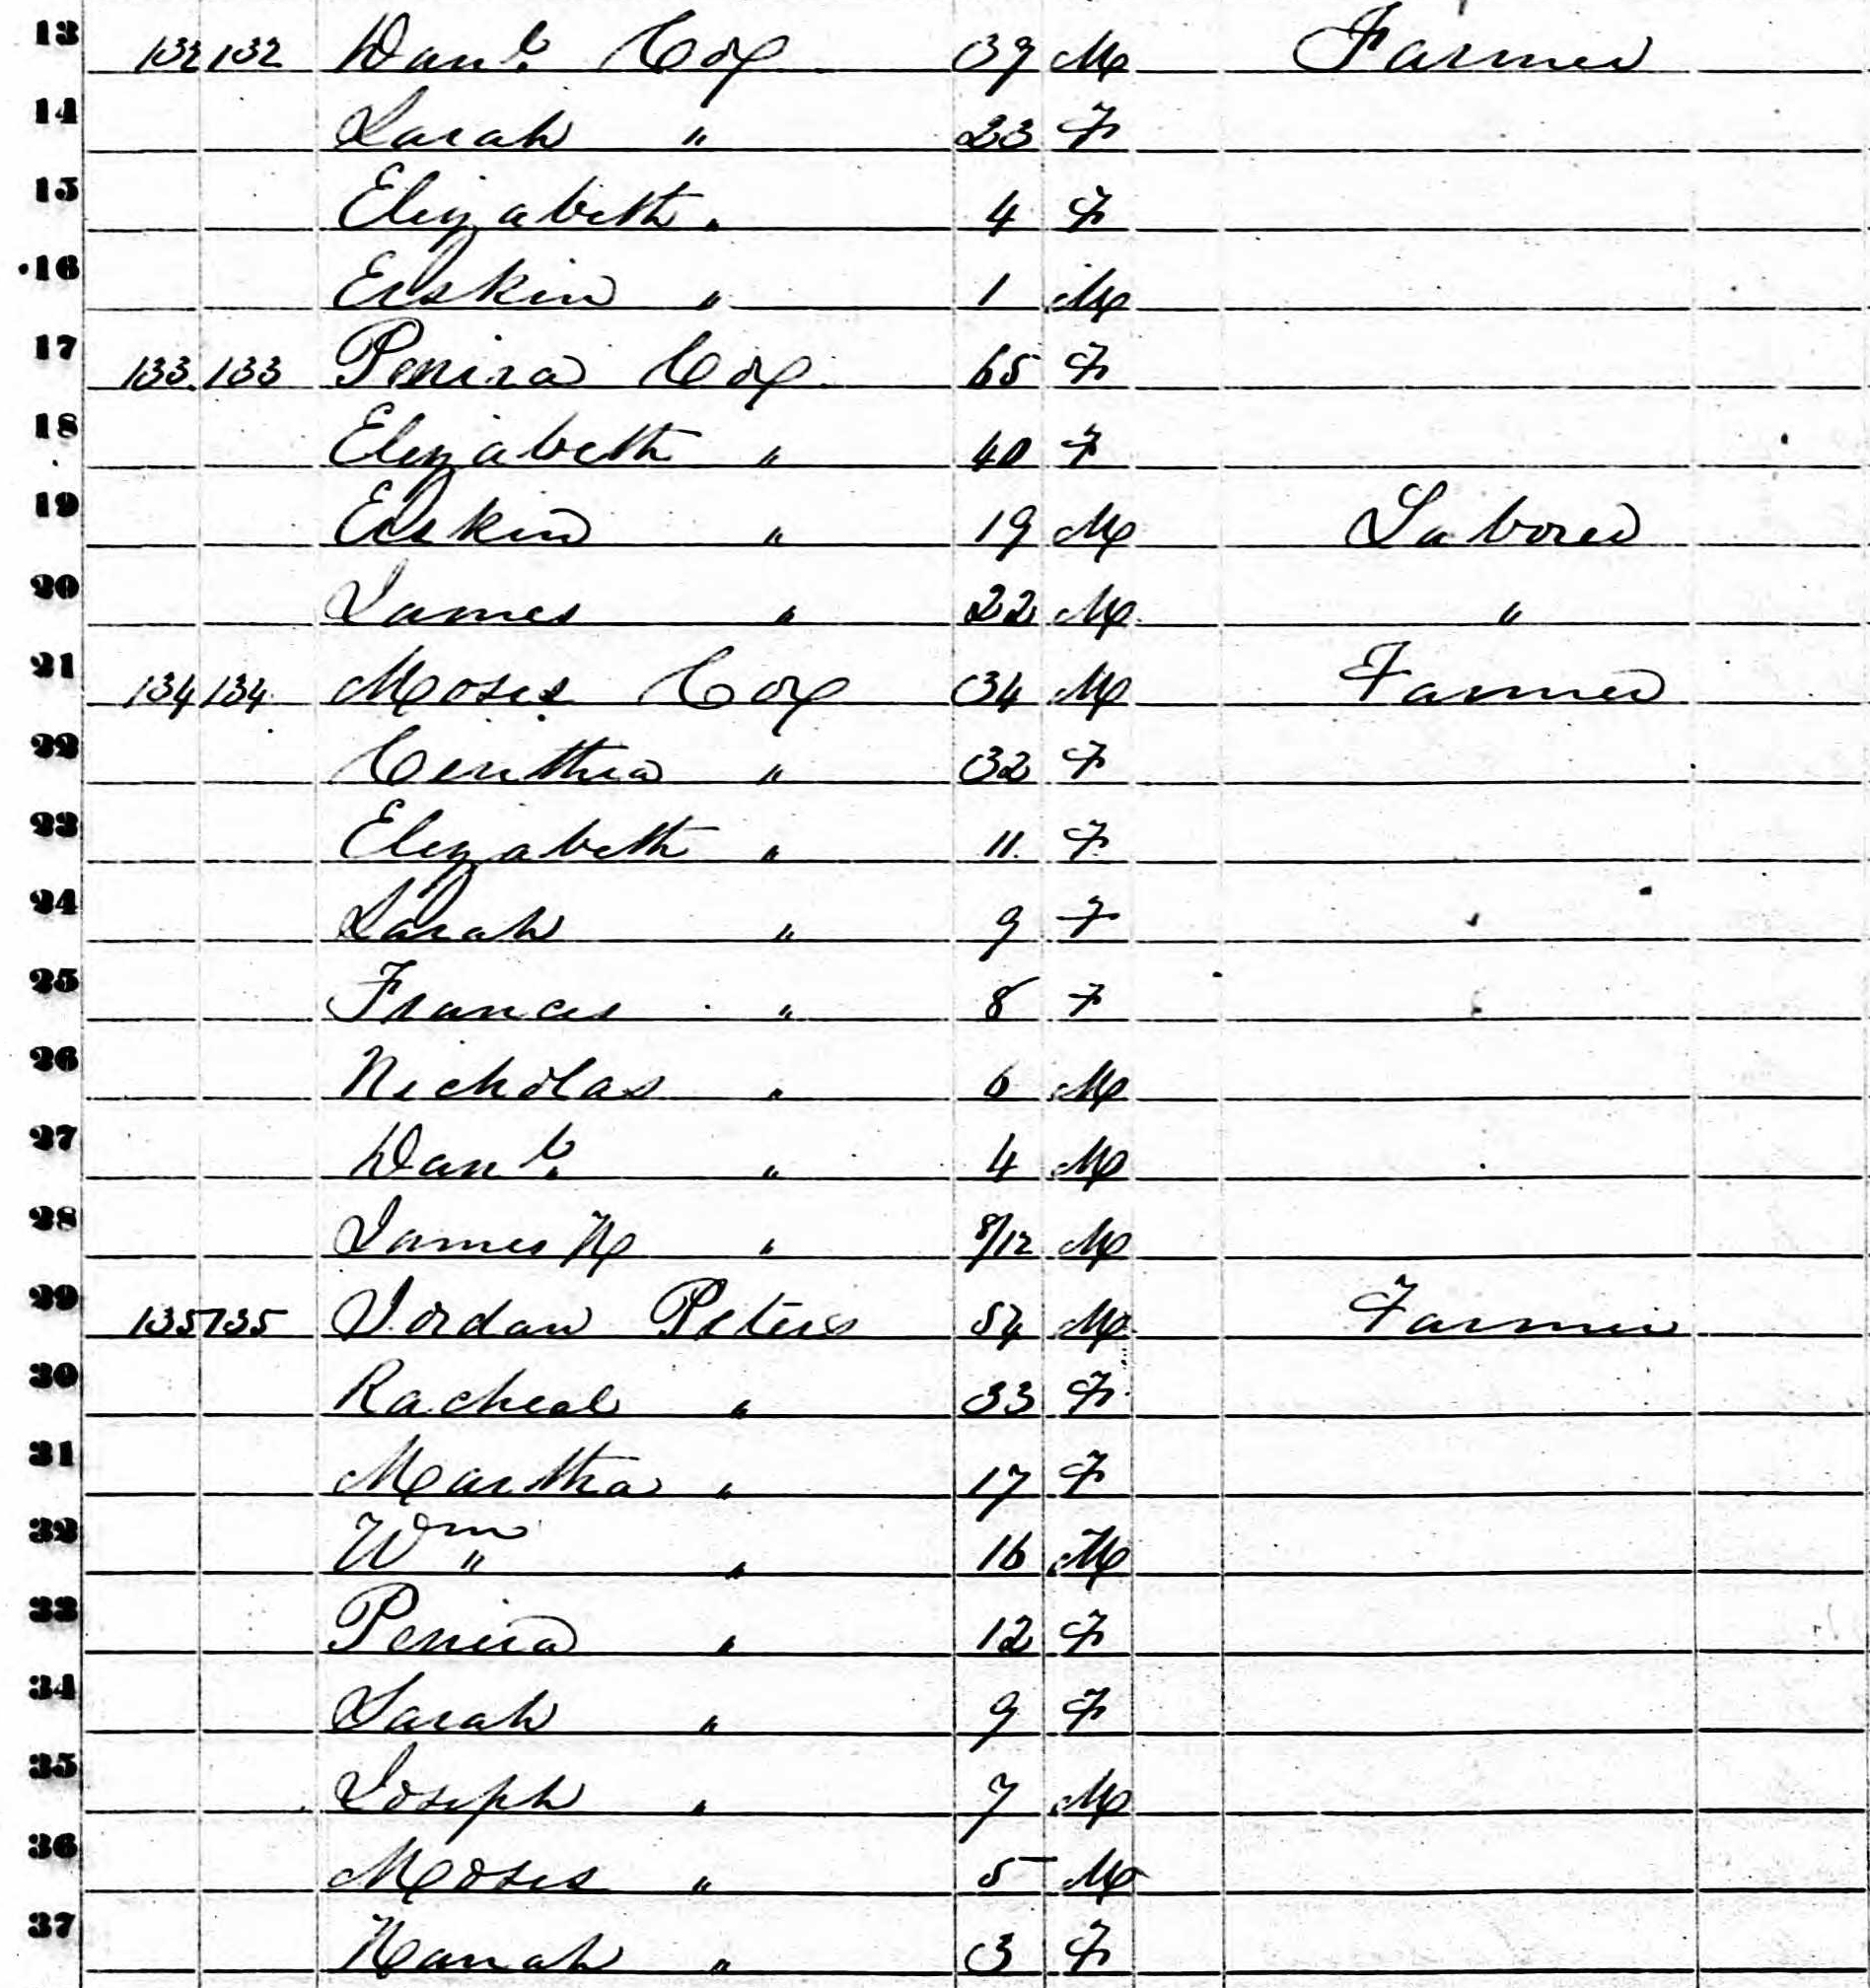 13 132 132 Danl. Cox 39 M Farmer
14 Sarah " 23 F
15 Elizabeth " 4 F
16 Erskin " 1 M
17 133 133 Penira Cox 65 F
18 Elizabeth " 40 F
19 Erskin " 19 M Laborer
20 James " 22 M "
21 134 134 Moses Cox 34 M Farmer
22 Cinthia " 32 F
23 Elizabeth " 11 F
24 Sarah " 9 F
25 Frances " 8 F
26 Nicholas " 6 M
27 Danl. " 4 M
28 James H " 8/12 M
29 135 135 Jordan Peters 54 M Farmer
30 Racheal " 33 F
31 Martha " 17 F
32 Wm " 16 M
33 Penira " 12 F
34 Sarah " 9 F
35 Joseph " 7 M
36 Moses " 5 M
37 Hanah " 3 F